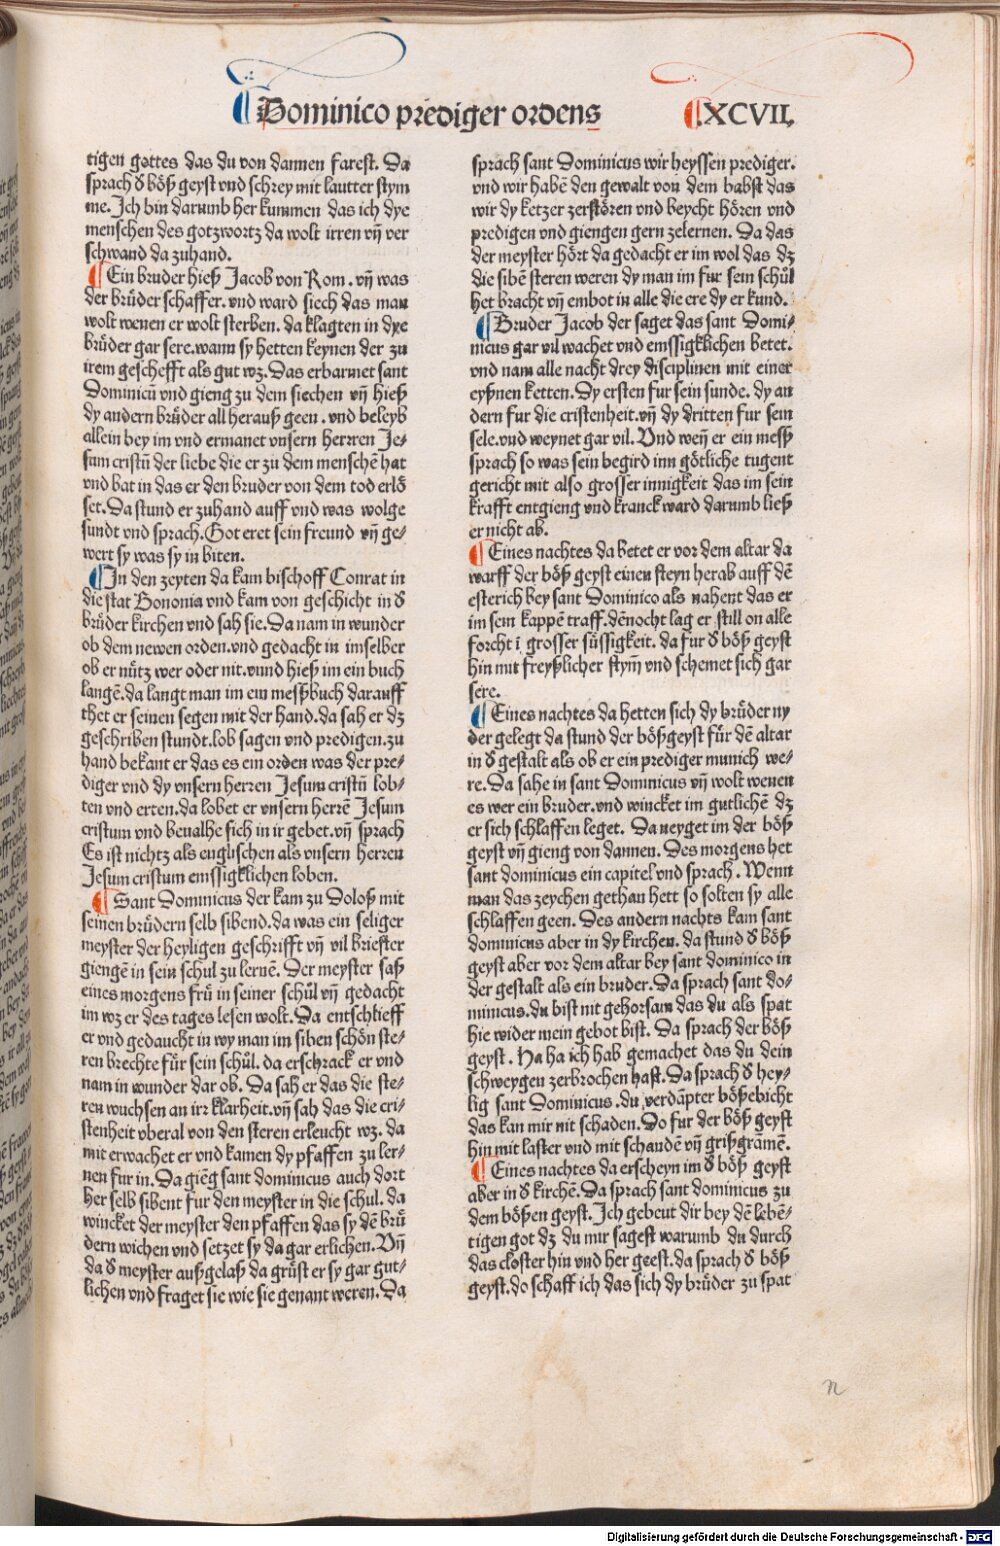 Dominico prediger ordens
XCVII.
tigen gottes das du von dannen farest. Da
sprach d̕ böß geyst vnd schrey mit lautter stym
me. Ich bin darumb her kummen das ich dye
menschen des gotzwortz da wolt irren vn̄ ver
schwand da zuhand.
Ein bruder hieß Jacob von Rom. vn̄ was
der brůder schaffer. vnd ward siech das man
wolt wenen er wolt sterben. da klagten in dye
brůder gar sere. wann sy hetten keynen der zu
irem geschefft als gut wz. Das erbarmet sant
Dominicū vnd gieng zu dem siechen vn̄ hieß
dy andern brůder all herauß geen. vnd beleyb
allein bey im vnd ermanet vnsern herrren Je⸗
sum cristū der liebe die er zu dem menschē hat
vnd bat in das er den bruder von dem tod erlö
set. Da stund er zuhand auff vnd was wolge
sundt vnd sprach. Got eret sein freund vn̄ ge⸗
wert sy was sy in biten.
In den zeyten da kam bischoff Conrat in
die stat Bononia vnd kam von geschicht in d̕
brůder kirchen vnd sah sie. Da nam in wunder
ob dem newen orden. vnd gedacht in imselber
ob er nůtz wer oder nit. vund hieß im ein buch
langē. da langt man im ein meßbuch darauff
thet er seinen segen mit der hand. da sah er dz
geschriben stundt. lob sagen vnd predigen. zu
hand bekant er das es ein orden was der pre⸗
diger vnd dy vnsern herren Jesum cristū lob⸗
ten vnd erten. da lobet er vnsern herrē Jesum
cristum vnd beualhe sich in ir gebet. vn̄ sprach
Es ist nichtz als englischen als vnsern herren
Jesum cristum emssigklichen loben.
Sant Dominicus der kam zu Doloß mit
seinen brůdern selb sibend. da was ein seliger
meyster der heyligen geschrifft vn̄ vil briester
giengē in sein schul zu lernē. Der meyster saß
eines morgens frů in seiner schůl vn̄ gedacht
im wz er des tages lesen wolt. Da entschlieff
er vnd gedaucht in wy man im siben schön ste⸗
ren brechte fůr sein schůl. da erschrack er vnd
nam in wunder dar ob. Da sah er das die ste⸗
ren wuchsen an irr klarheit. vn̄ sah das die cri⸗
stenheit vberal von den steren erleucht wz. da
mit erwachet er vnd kamen dy pfaffen zu ler⸗
nen fur in. Da giēg sant dominicus auch dort
her selb sibent fur den meyster in die schul. da
wincket der meyster den pfaffen das sy dē brů
dern wichen vnd setzet sy da gar erlichen. Vn̄
da d̕ meyster außgelaß da grůst er sy gar gut⸗
lichen vnd fraget sie wie sie genant weren. Da
sprach sant Dominicus wir heyssen prediger.
vnd wir habē den gewalt von dem babst das
wir dy ketzer zerstören vnd beycht hören vnd
predigen vnd giengen gern zelernen. Da das
der meyster hört da gedacht er im wol das dz
die sibē steren weren dy man im fur sein schůl
het bracht vn̄ embot in alle die ere dy er kund.
Bruder Jacob der saget das sant Domi⸗
nicus gar vil wachet vnd emssigklichen betet.
vnd nam alle nacht drey disciplinen mit einer
eyßnen ketten. Dy ersten fur sein sunde. dy an
dern fur die cristenheit. vn̄ dy dritten fur sein
sele. vnd weynet gar vil. Vnd wen̄ er ein meß
sprach so was sein begird inn götliche tugent
gericht mit also grosser innigkeit das im sein
krafft entgieng vnd kranck ward darumb ließ
er nicht ab.
Eines nachtes da betet er vor dem altar da
warff der böß geyst einen steyn herab auff dē
esterich bey sant Dominico als nahent das er
im sein kappē traff. dēnocht lag er still on alle
forcht ī grosser sůssigkeit. da fur d̕ böß geyst
hin mit freyßlicher stym̄ vnd schemet sich gar
sere.
Eines nachtes da hetten sich dy brůder ny
der gelegt da stund der böß geyst fůr dē altar
in d̕ gestalt als ob er ein prediger munich we⸗
re. Da sahe in sant Dominicus vn̄ wolt wenen
es wer ein bruder. vnd wincket im gutlichē dz
er sich schlaffen leget. Da neyget im der böß
geyst vn̄ gieng von dannen. Des morgens het
sant dominicus ein capitel vnd sprach. Wenn
man das zeychen gethan hett so solten sy alle
schlaffen geen. Des andern nachts kam sant
dominicus aber in dy kirchen. da stund d̕ böß
geyst aber vor dem altar bey sant dominico in
der gestalt als ein bruder. Da sprach sant do⸗
minicus. du bist nit gehorsam das du als spat
hie wider mein gebot bist. Da sprach der böß
geyst. Ha ha ich hab gemachet das du dein
schweygen zerbrochen hast. Da sprach d̕ hey⸗
lig sant Dominicus. du verdāpter bößwicht
das kan mir nit schaden. Do fur der böß geyst
hin mit laster vnd mit schandē vn̄ grißgrāmē.
Eines nachtes da erscheyn im d̕ böß geyst
aber in d̕ kirchē. Da sprach sant dominicus zu
dem bößen geyst. Ich gebeut dir bey dē lebē⸗
tigen got dz du mir sagest warumb du durch
das closter hin vnd her geest. da sprach d̕ böß
geyst. do schaff ich das sich dy brůder zu spat
n
Digitalisierung gefördert durch die Deutsche Forschungsgemeinschaft - DFG